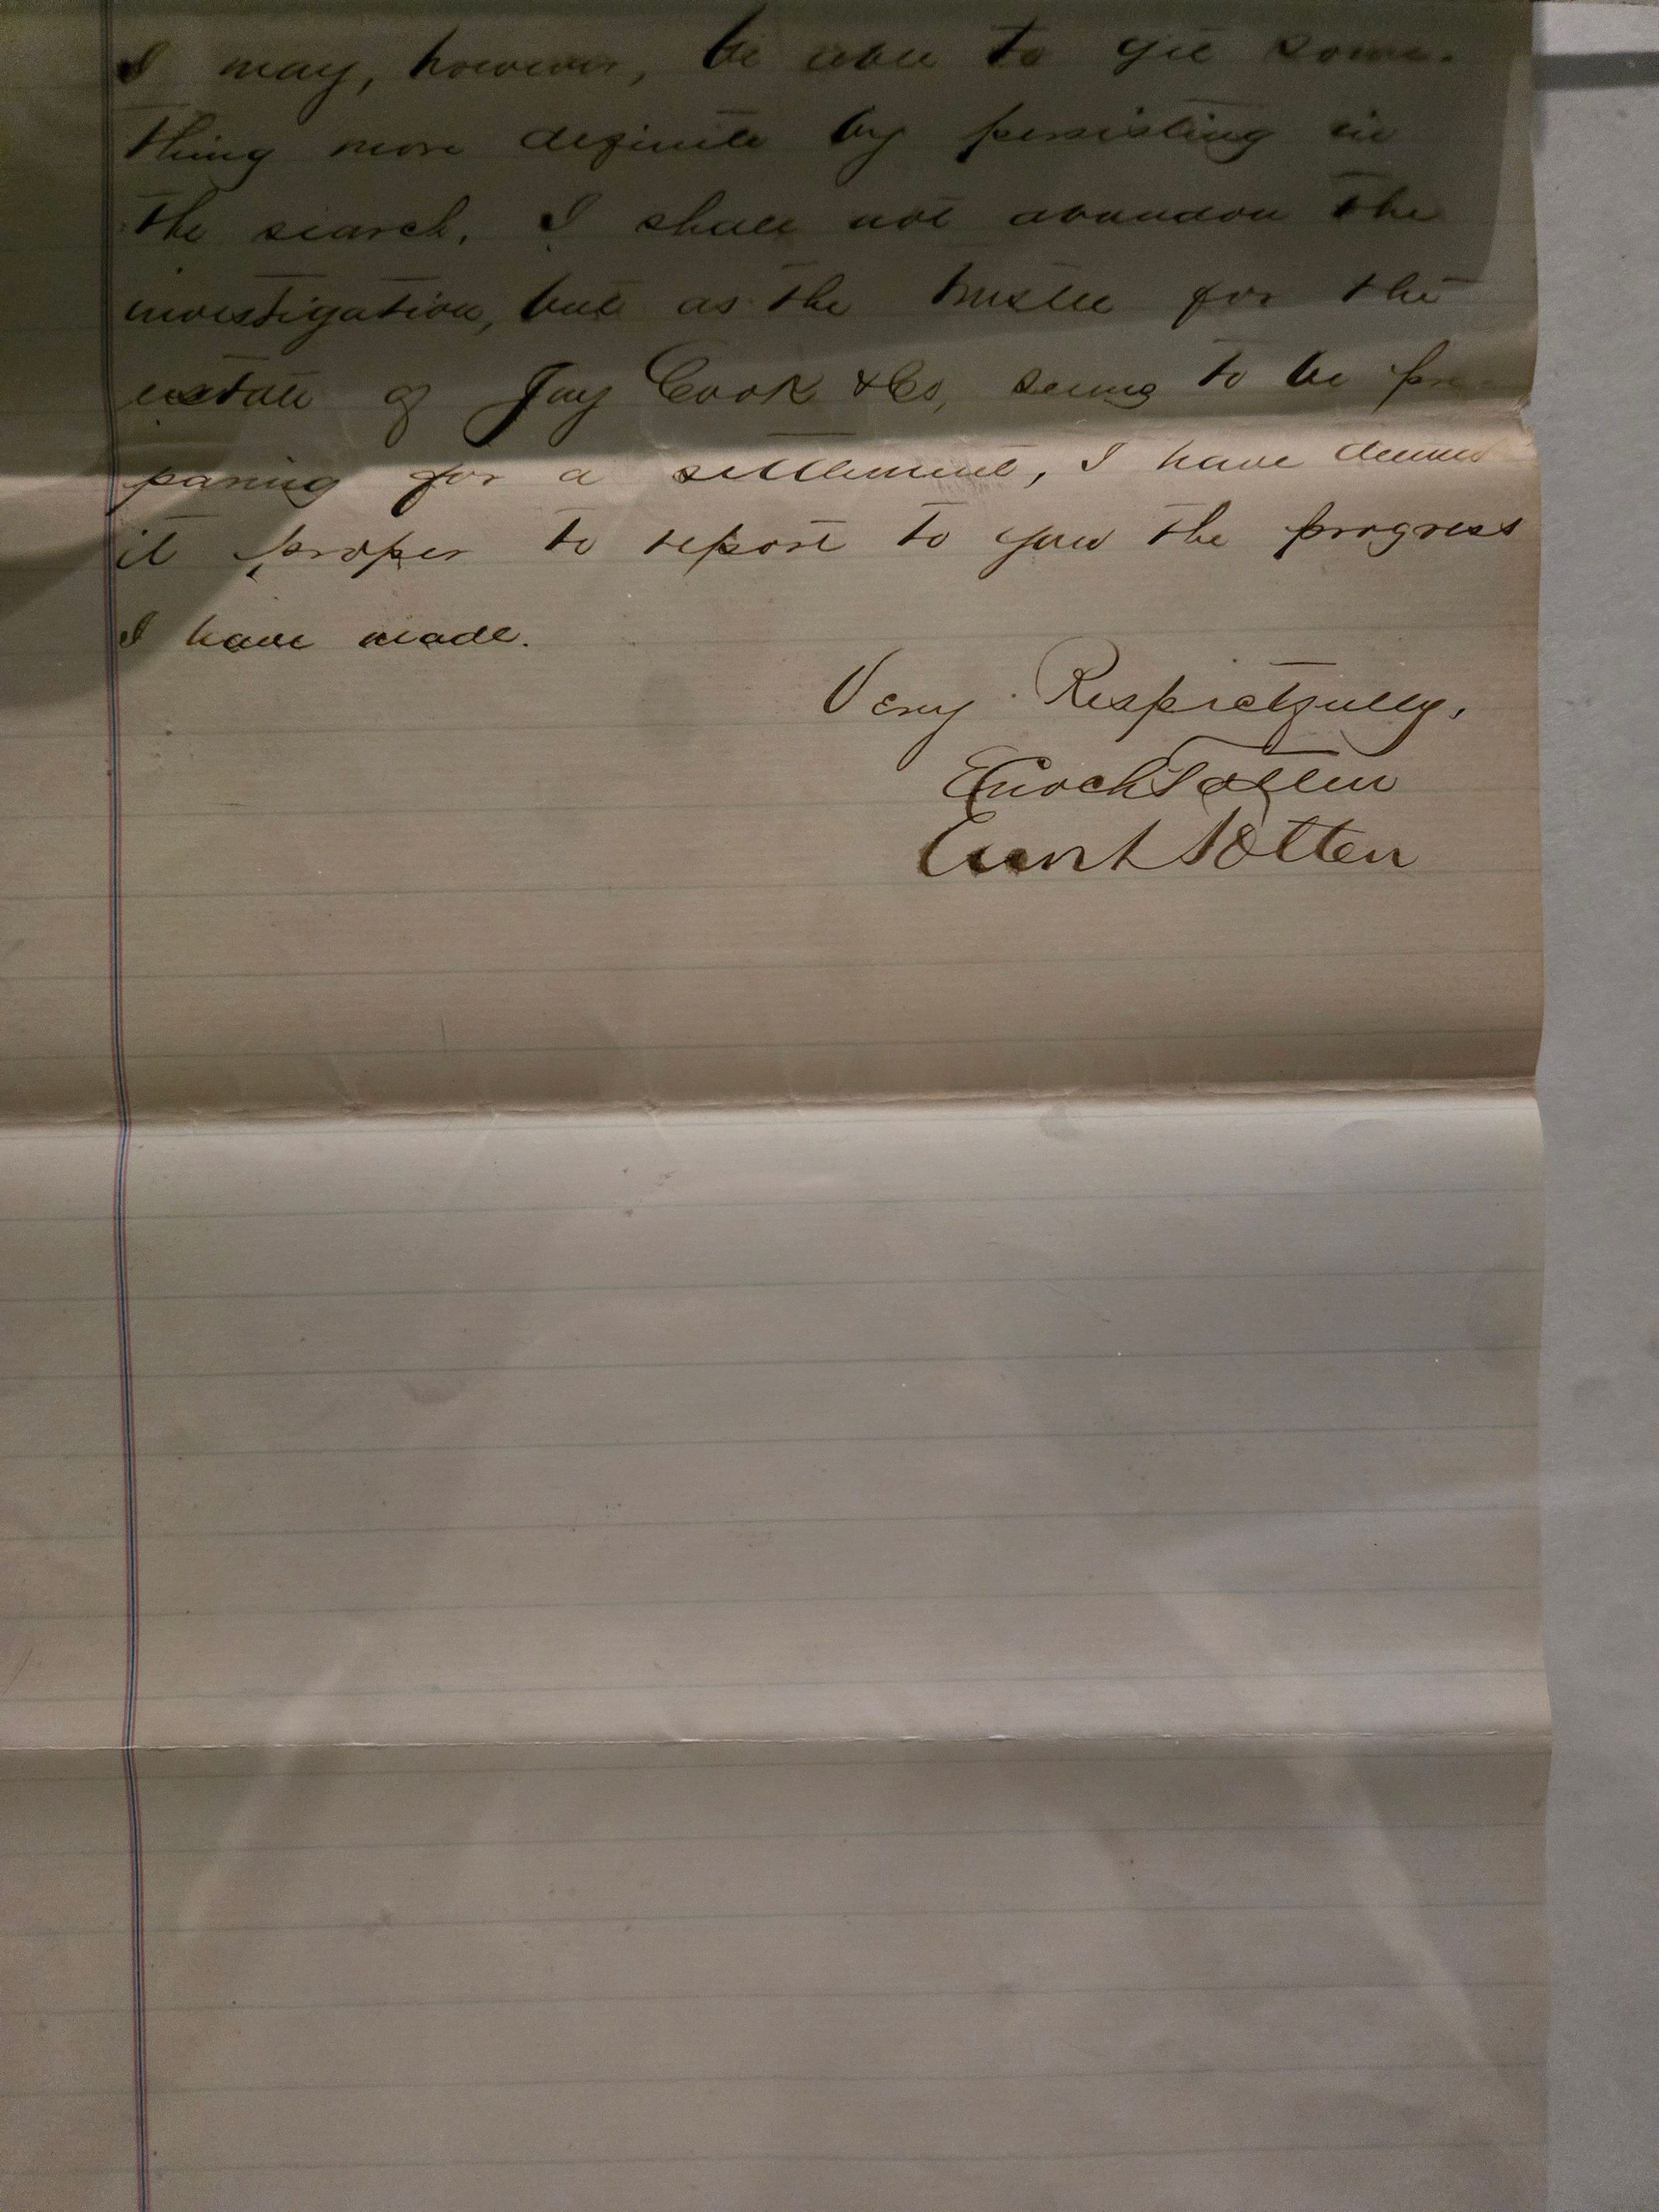 I may, however, be able to get some-
thing more definite by persisting in
the search. I shall not abandon the
investigation, but as the trustee for the
estate of Jay Cook & Co, seems to be pre-
paring for a settlement, I have deemed
it proper to report to you the progress
I have made.
Very Respectfully,
Enoch Totten
Totten